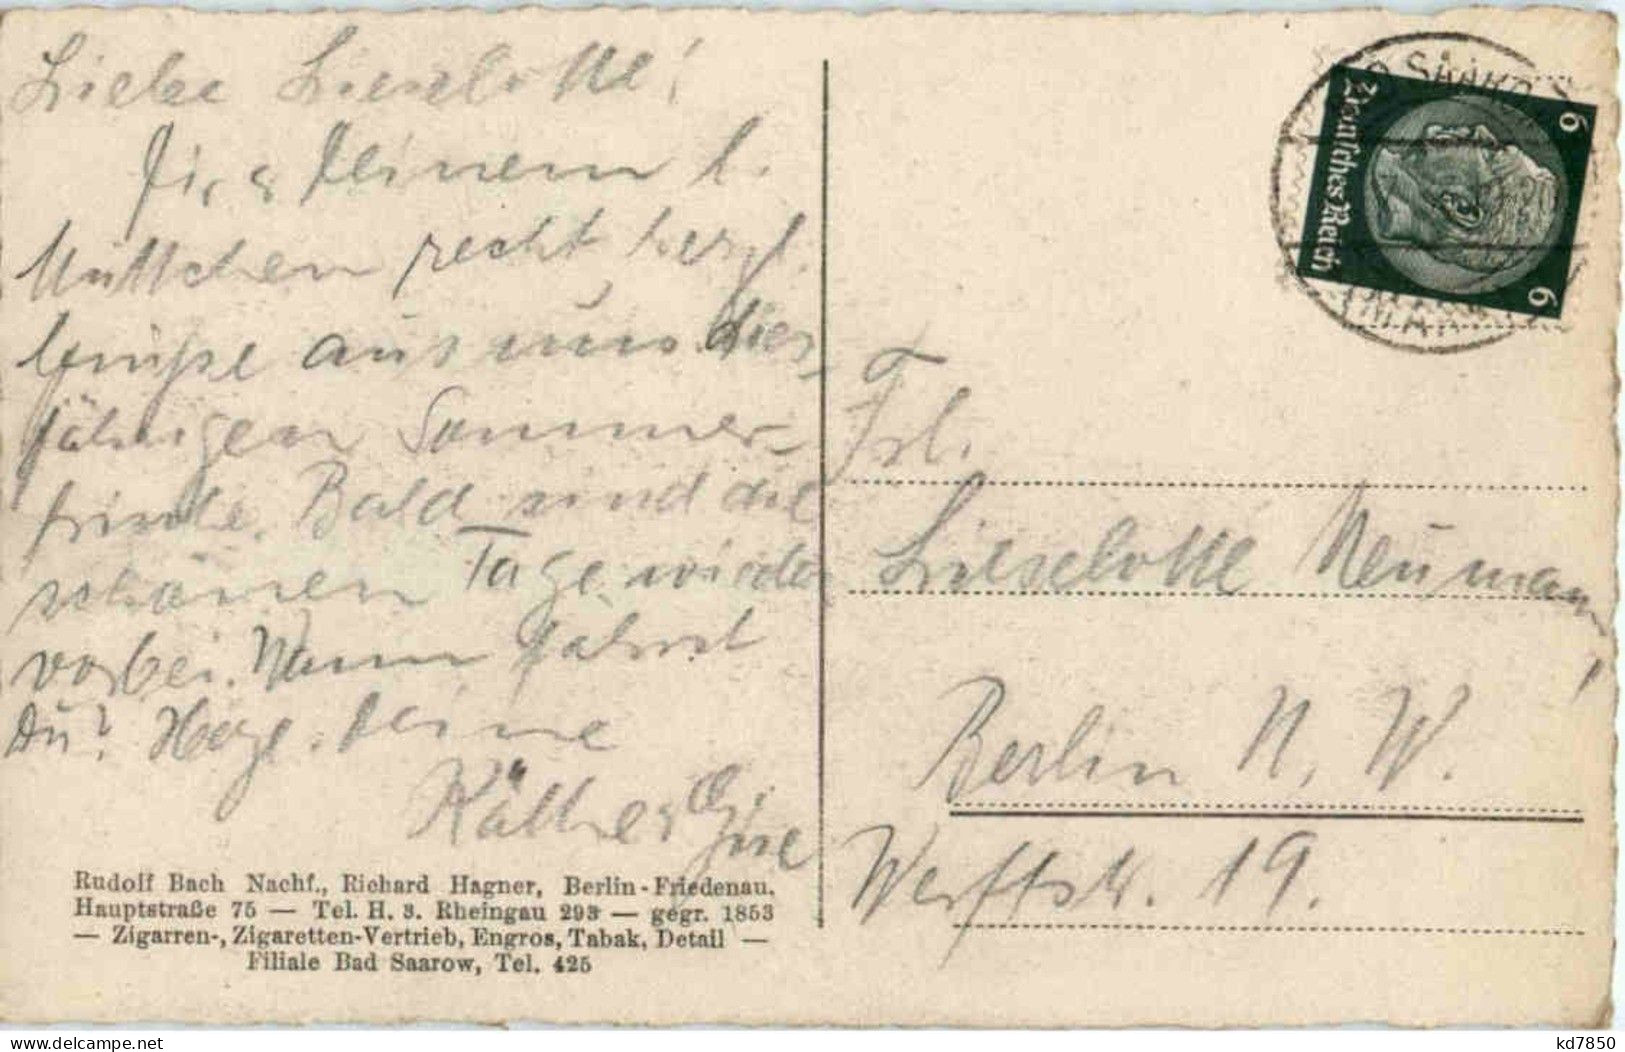 Liebe Lieselotte!
Dir & Deinem l.
Muttchen recht herzl.
Grüße aus uns. dies-
jährigen Sommer-
frische. Bald sind die
schönen Tage wieder
vorbei. Wann fährst
Du? Herzl. Deine
Käthe &
Rudolf Bach Nachf., Richard Hagner, Berlin-Friedenau.
Hauptstraße 75 — Tel. H. 3. Rheingau 293 — gegr. 1853
— Zigarren-, Zigaretten-Vertrieb, Engros, Tabak, Detail —
Filiale Bad Saarow, Tel. 425
Deutsches Reich
6
6
Frl.
Lieselotte Neumann
Berlin N. W.
Werftstr. 19.
kd7850